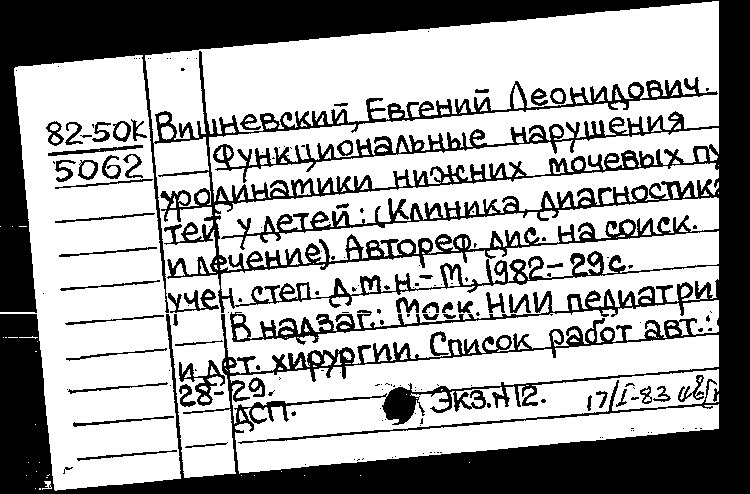 82-50К Вишневский, Евгений Леонидович.
5062 Функциональные нарушения
уродинатики нижних мочевых пу
тей у детей: (Клиника, диагностика
и лечение). Автореф. дис. на соиск.
учен. степ. д.м.н.- М., 1982.- 29 с.
В надзаг.: Моск. НИИ педиатрии
и дет. хирургии. Список работ авт.:
28-29.
ДСП. Экз. N 12. 17/I-83